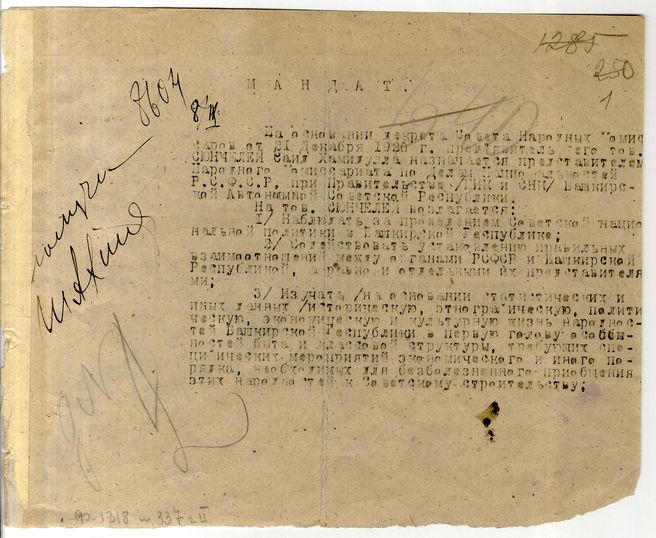 1285
250
1
8604
8/III
М А Н Д А Т .
На основании декрета Совета Народных Комис
саров от 21 Декабря 19 г. пред'явитель сего тов.
СЮНЧЕЛЕЙ Саид Хамидулла назначается представителем
Народного Комиссариата по делам Национальностей
Р.С.Ф.С.Р. при Правительстве /ЦИК и СНК/ Башкирс-
кой Автономной Советской Республики.
На тов. СЮНЧЕЛЕЙ возлагается:
1/ Наблюдать за проведением Советской нацио
нальной политики в Башкирской Республике;
2/ Содействовать установлению правильных
взаимоотношений между органами РСФСР и Башкирской
Республикой, а равно и отдельными их представителя
ми;
3/ Изучать /на основании статистических и
иных данных /историческую, этнографическую, полити
ческую, экономическую и культурную жизнь народнос-
тей Башкирской Республики в первую голову особен-
ностей быта и классовой структуры, требующих спе-
цифических мероприятий экономического и иного по-
рядка, необходимых для безболезненного приобщения
этих народностей к Советскому строительству;
получил
фр-1318 337 II